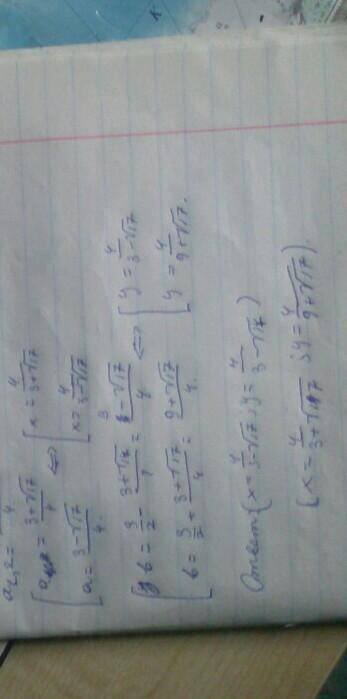 a₁,₂ = —/4
[ a = (3+√17)/4 ⇔ [ x = 4/(3+√17)
[ a = (3-√17)/4. [ x = 4/(3-√17)
[ b = 3/2 - (3+√17)/4 = (3-√17)/4 ⇔ [ y = 4/(3-√17)
[ b = 3/2 + (3+√17)/4 = (9+√17)/4. [ y = 4/(9+√17).
Ответ {x = 4/(3-√17); y = 4/(3-√17)}
{x = 4/(3+√17); y = 4/(9+√17)}.